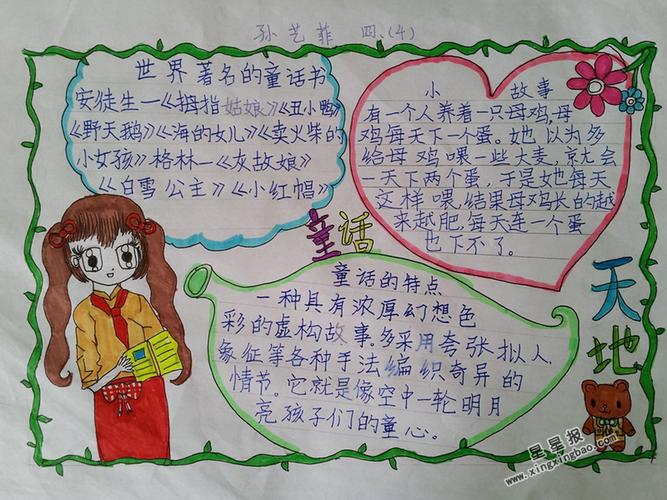 孙艺菲 四、(4)
世界著名的童话书
安徒生—《拇指姑娘》《丑小鸭》
《野天鹅》《海的女儿》《卖火柴的
小女孩》格林—《灰故娘》
《白雪公主》《小红帽》
小 故事
有一个人养着一只母鸡,母
鸡每天下一个蛋。她以为多
给母鸡喂一些大麦,京尤会
一天下两个蛋,于是她每天
这样喂,结果母鸡长的越
来越肥,每天连一个蛋
也下不了。
童话
天地
童话的特点
一种具有浓厚幻想色
彩的虚构故事。多采用夸张拟人、
象征等各种手法编织奇异的
情节。它就是像空中一轮明月
亮孩子们的童心。
星星报
www.xingxingbao.com